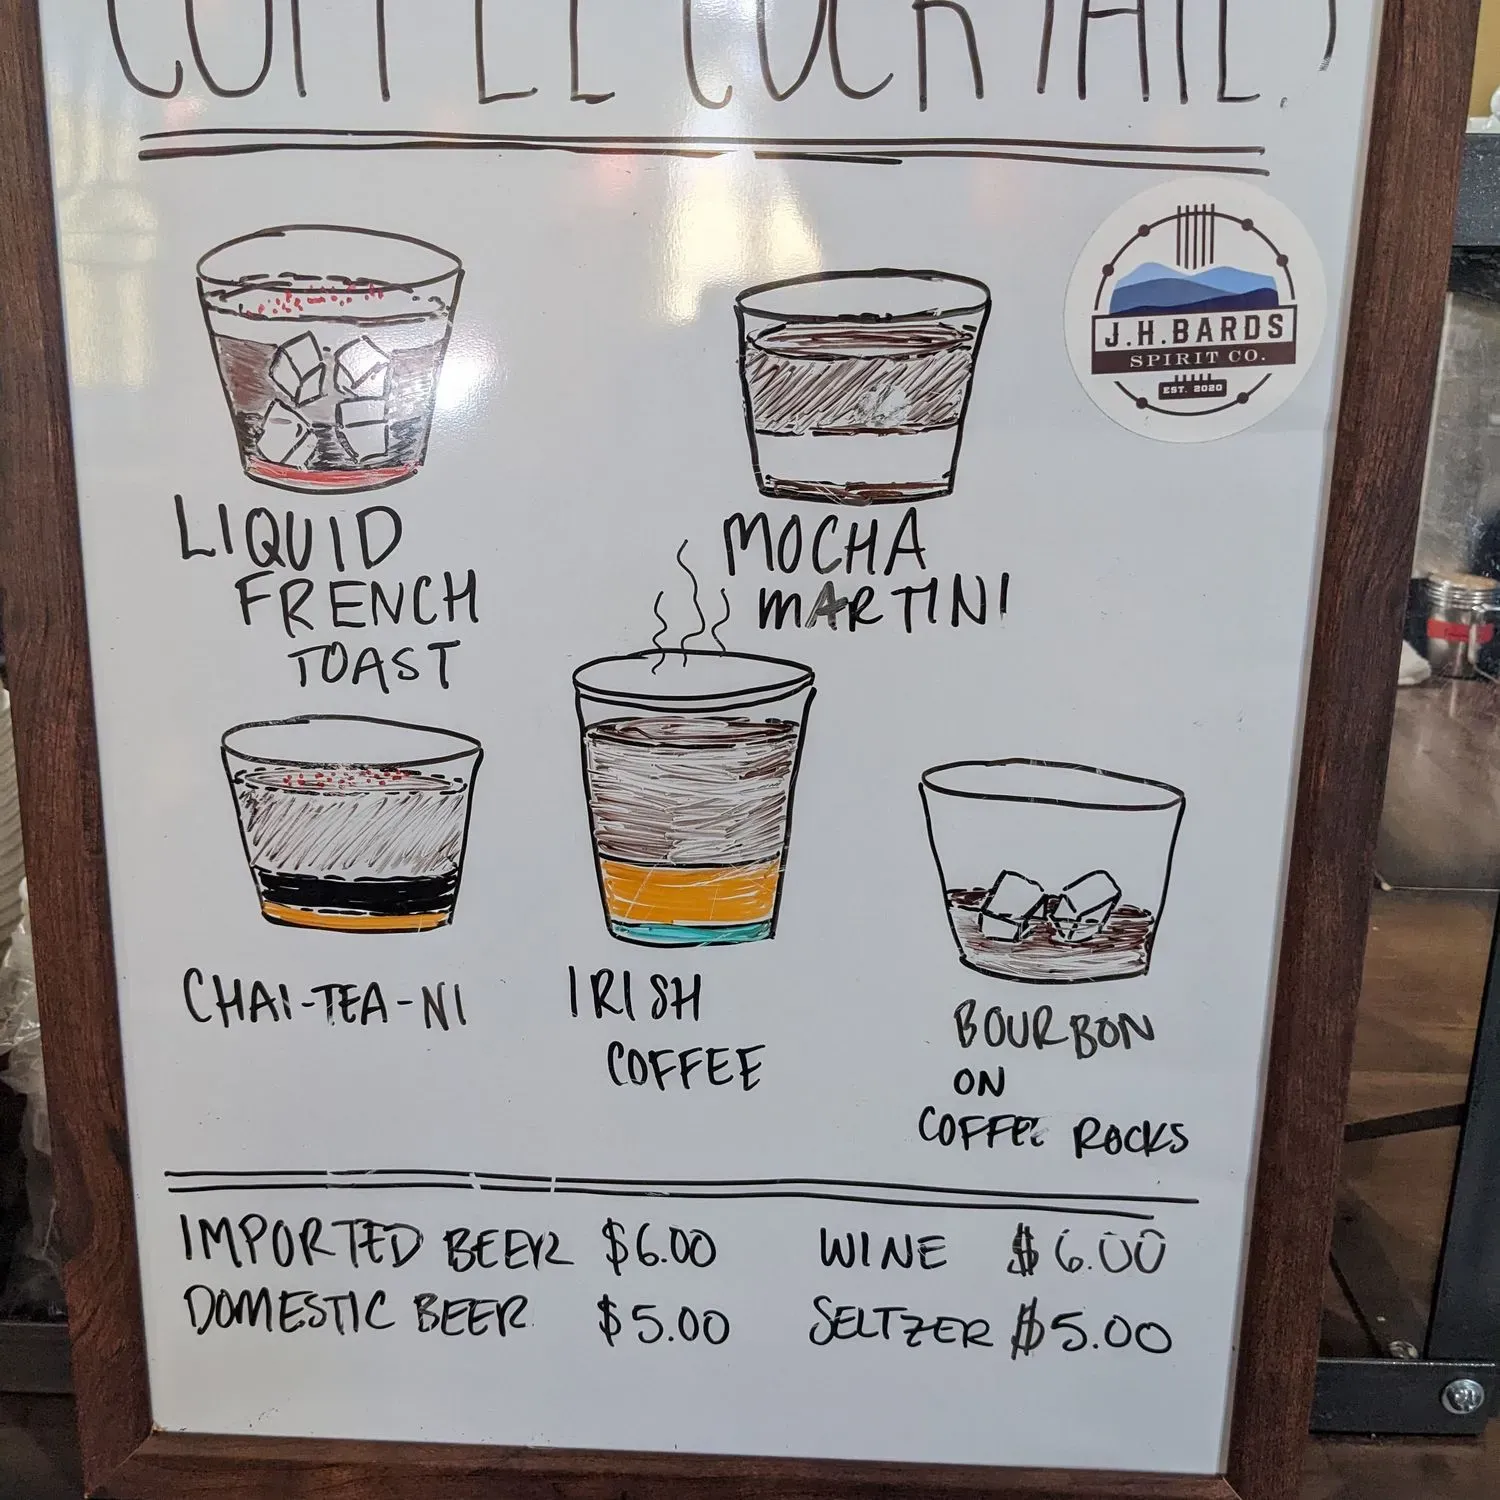 COFFEE COCKTAILS
J.H.BARDS
SPIRIT CO.
EST. 2020
LIQUID
FRENCH
TOAST
MOCHA
MARTINI
CHAI-TEA-NI
IRISH
COFFEE
BOURBON
ON
COFFEE ROCKS
IMPORTED BEER $6.00
WINE $6.00
DOMESTIC BEER $5.00
SELTZER $5.00